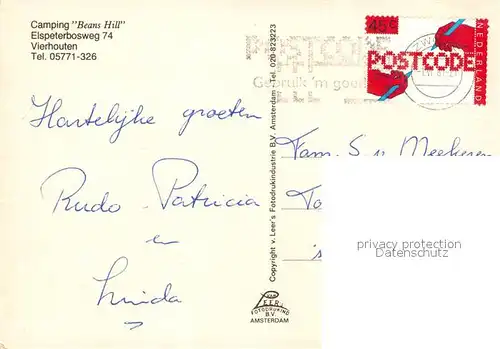 Camping "Beans Hill"
Elspeterbosweg 74
Vierhouten
Tel. 05771-326
POSTCODE
Gebruik 'm goed
45 c
POSTCODE
NEDERLAND
Hartelijke groeten
Rudo Patricia
en
Linda
Copyright v. Leer's Fotodrukindustrie B.V. Amsterdam - Tel. 020-823223
v. LEER
FOTODRUKIND
B.V.
AMSTERDAM
Fam. S v
privacy protection
Datenschutz